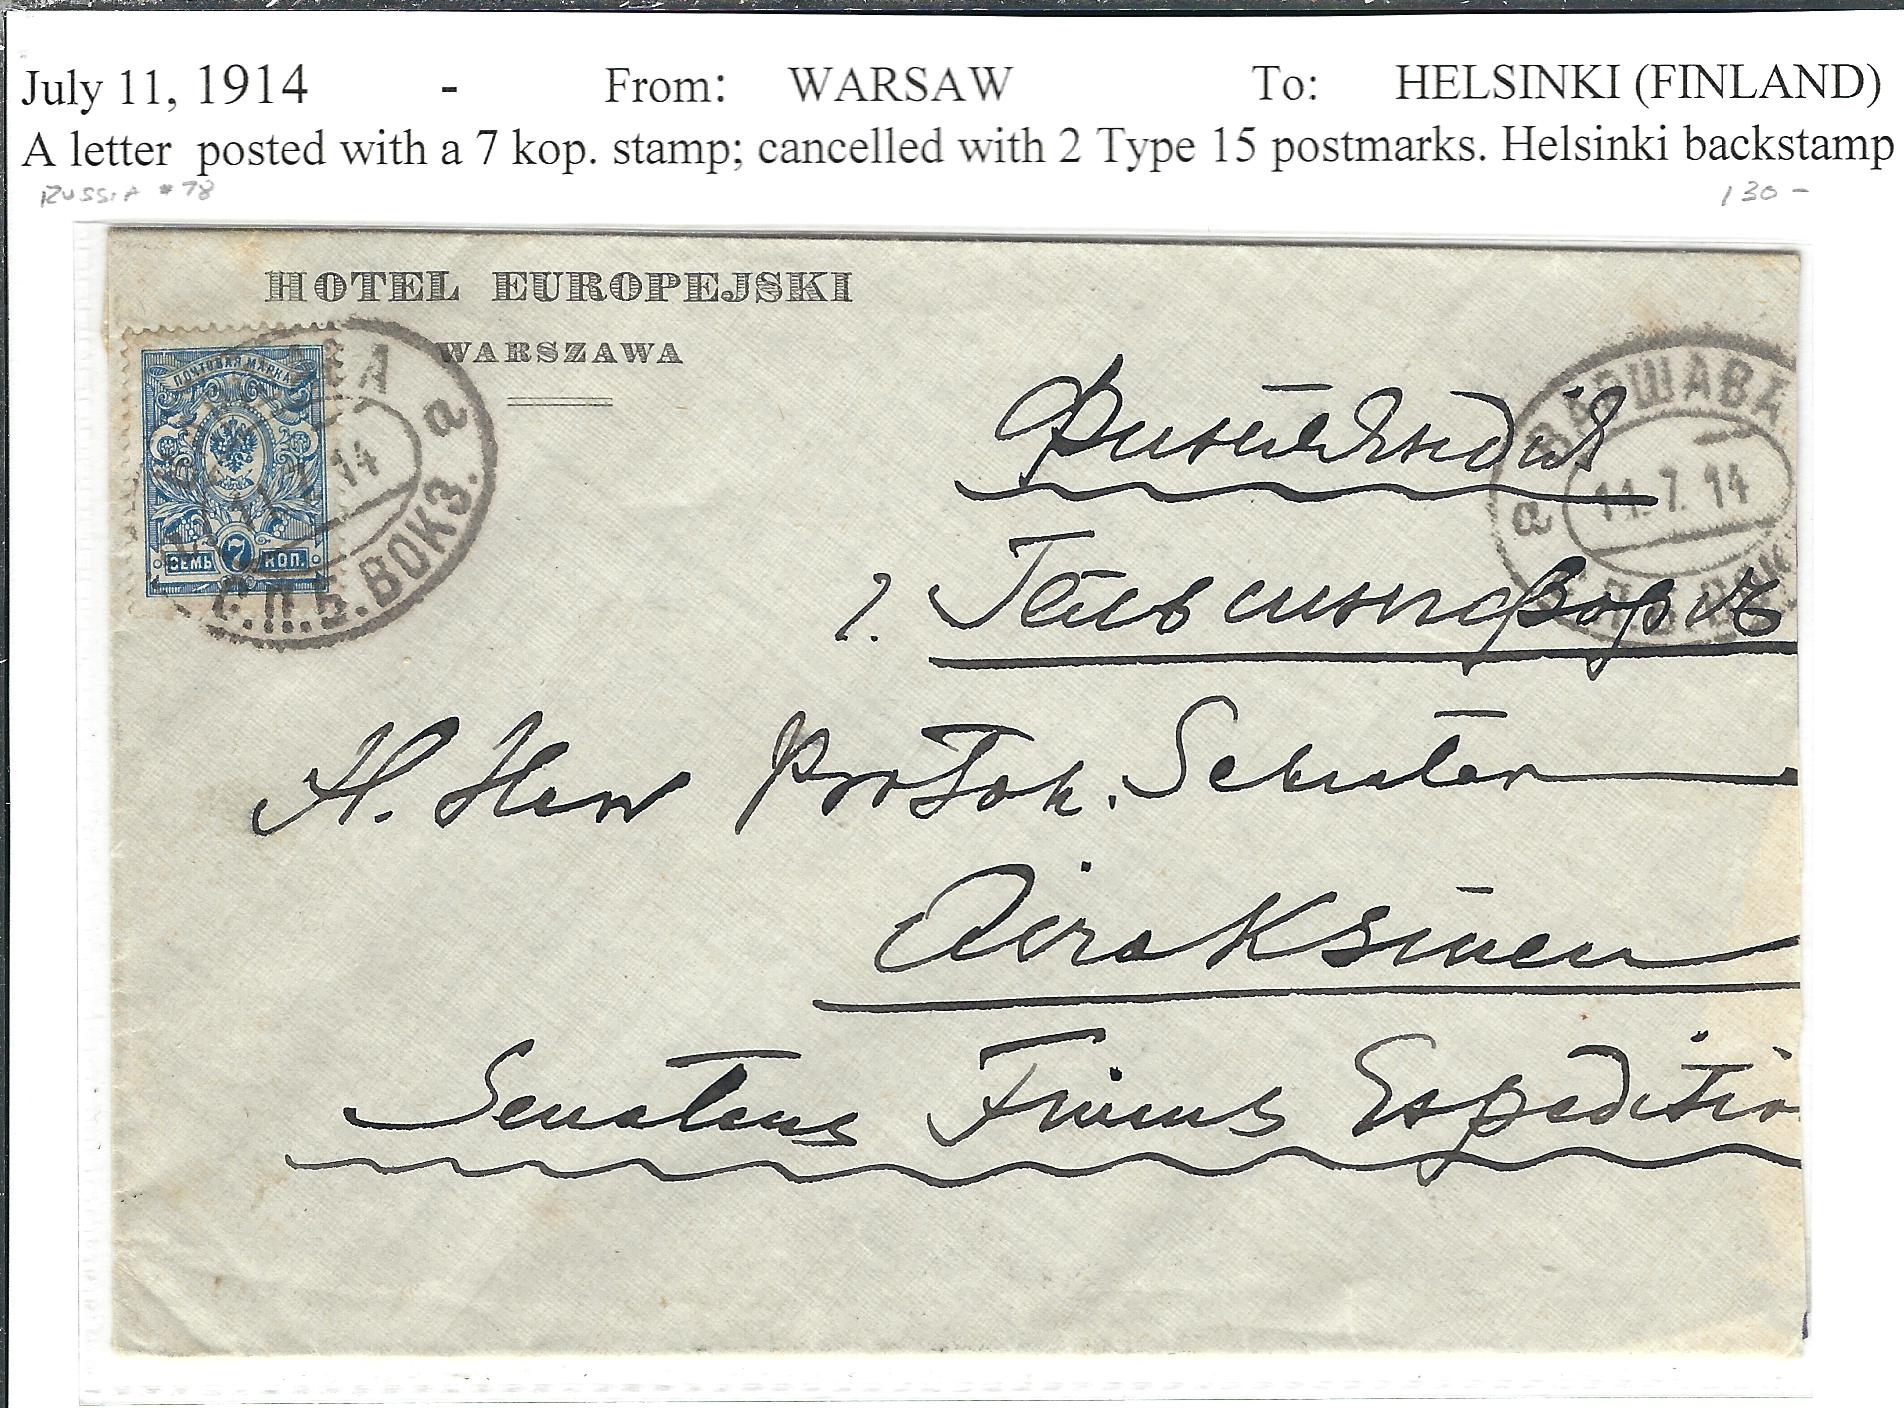 July 11, 1914 - From: WARSAW To: HELSINKI (FINLAND)
A letter posted with a 7 kop. stamp; cancelled with 2 Type 15 postmarks. Helsinki backstamp
RUSSIA #78 130-
HOTEL EUROPEJSKI
WARSZAWA
ПОЧТОВАЯ МАРКА
СЕМЬ 7 КОП.
14
a
С.П.Б.ВОКЗ.
ВАРШАВА
11.7.14
a
Финляндія
г. Гельсингфорсъ
H. Herr Protok. Sekreter
Airaksinen
Senatens Finans Expeditio